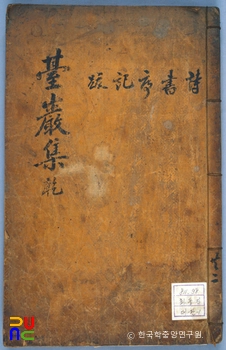 臺巖集 乾
詩書序記跋
共二
PUAC
© 한국학중앙연구원